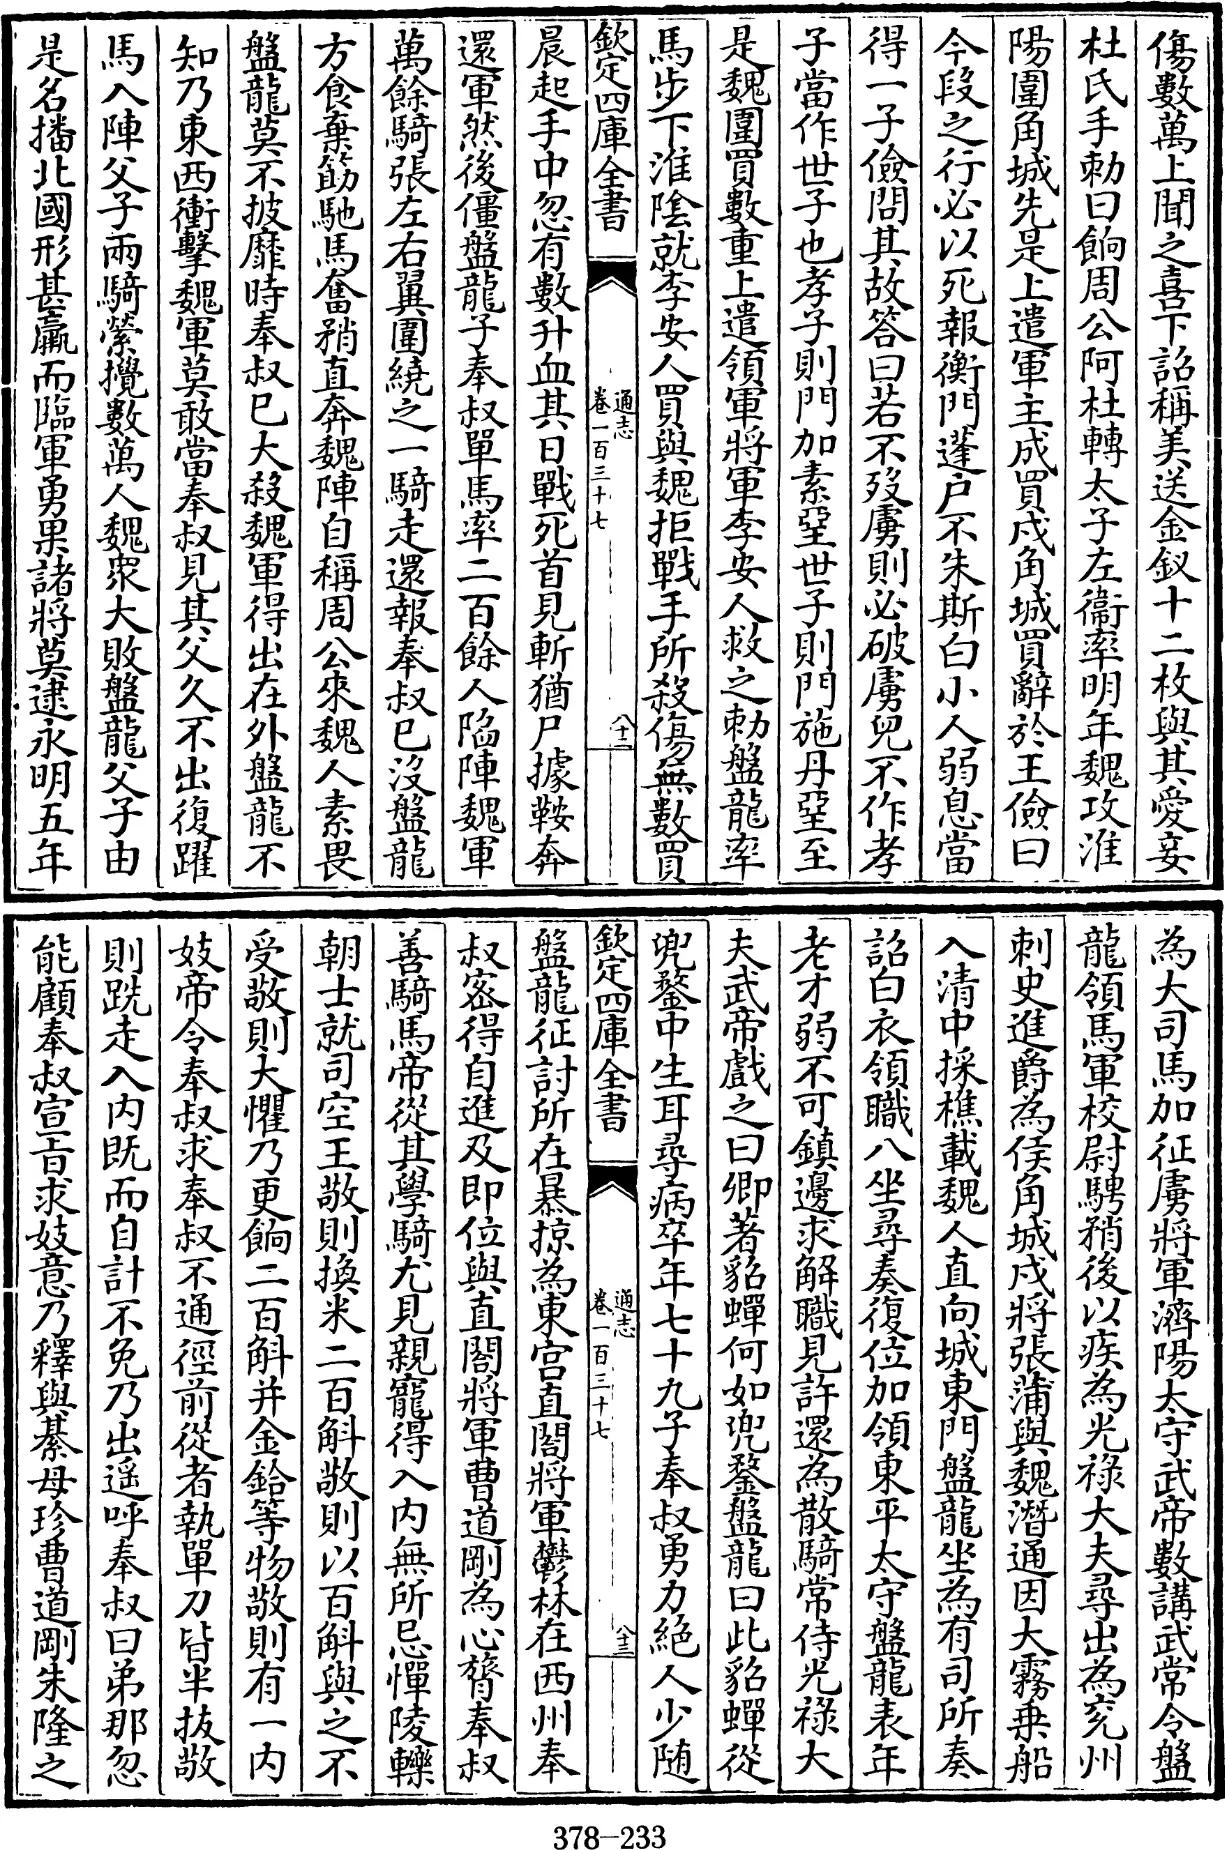 傷數萬上聞之喜下詔稱美送金釵十二枚與其愛妾
杜氏手勅曰餉周公阿杜轉太子左衞率明年魏攻淮
陽圍角城先是上遣軍主成買戍角城買辭於王儉曰
今段之行必以死報衡門蓬户不朱斯白小人弱息當
得一子儉問其故答曰若不殁虜則必破虜兒不作孝
子當作世子也孝子則門加素堊世子則門施丹堊至
是魏圍買數重上遣領軍將軍李安人救之勅盤龍率
馬步下淮陰就李安人買與魏拒戰手所殺傷無數買
欽定四庫全書
通志
卷一百三十七
八十二
晨起手中忽有數升血其日戰死首見斬猶尸據鞍奔
還軍然後僵盤龍子奉叔單馬率二百餘人陷陣魏軍
萬餘騎張左右翼圍繞之一騎走還報奉叔已没盤龍
方食棄筯馳馬奮矟直奔魏陣自稱周公來魏人素畏
盤龍莫不披靡時奉叔已大殺魏軍得出在外盤龍不
知乃東西衝擊魏軍莫敢當奉叔見其父久不出復躍
馬入陣父子兩騎縈攪數萬人魏衆大敗盤龍父子由
是名播北國形甚羸而臨軍勇果諸將莫逮永明五年
為大司馬加征虜將軍濟陽太守武帝數講武常令盤
龍領馬軍校尉騁矟後以疾為光祿大夫尋出為兖州
刺史進爵為侯角城戍將張蒲與魏潛通因大霧乗船
入清中採樵載魏人直向城東門盤龍坐為有司所奏
詔白衣領職八坐尋奏復位加領東平太守盤龍表年
老才弱不可鎮邊求解職見許還為散騎常侍光祿大
夫武帝戲之曰卿著貂蟬何如兜鍪盤龍曰此貂蟬從
兜鍪中生耳尋病卒年七十九子奉叔勇力絶人少隨
欽定四庫全書
通志
卷一百三十七
八十三
盤龍征討所在暴掠為東宫直閤將軍鬱林在西州奉
叔密得自進及即位與直閤將軍曹道剛為心膂奉叔
善騎馬帝從其學騎尤見親寵得入内無所忌憚陵轢
朝士就司空王敬則換米二百斛敬則以百斛與之不
受敬則大懼乃更餉二百斛并金鉿等物敬則有一内
妓帝令奉叔求奉叔不通徑前從者執單刀皆半拔敬
則跣走入内既而自計不免乃出遥呼奉叔曰弟那忽
能顧奉叔宣㫖求妓意乃釋與綦母珍曹道剛朱隆之
378-233